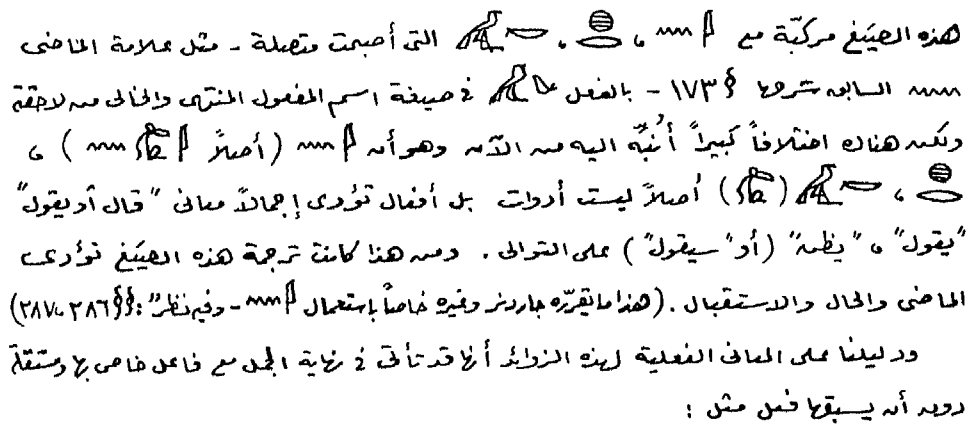 هذه الصيَغ مركبّة مع 𓇋𓈖 ، 𓐍𓂋 ، 𓂡𓂋 التى أصبحت متصلة - مثل علامة الماضى
𓈖 السابق شرحها § ١٧٣ - بالفعل فى صيغة اسم المفعول المنتهى والخالى من لاحقة
ولكن هناك اختلافاً كبيراً أُنبّه اليه من الآن وهو أن 𓇋𓈖 (أصلاً 𓇋𓀁𓈖) ،
𓐍𓂋 ، 𓂡𓂋 (𓀁) أصلاً ليست أدوات بل أفعال تؤدى إجمالاً معانى "قال أو يقول"
"يقول" ، "يظن" (أو "سيقول") على التوالى . ومن هذا كانت ترجمة هذه الصيَغ تؤدى
الماضى والحال والاستقبال . (هذا ما يقرّره جاردنر وغيره خاصاً باستعمال 𓇋𓈖 - وفيه نظرٌ : §§ ٣٨٦ ، ٢٨٧)
ودليلنا على المعانى الفعلية لهذه الزوائد أنها قد تأتى فى نهاية الجمل مع فاعل خاص بها ومستقلة
دون أن يسبقها فعل مثل :